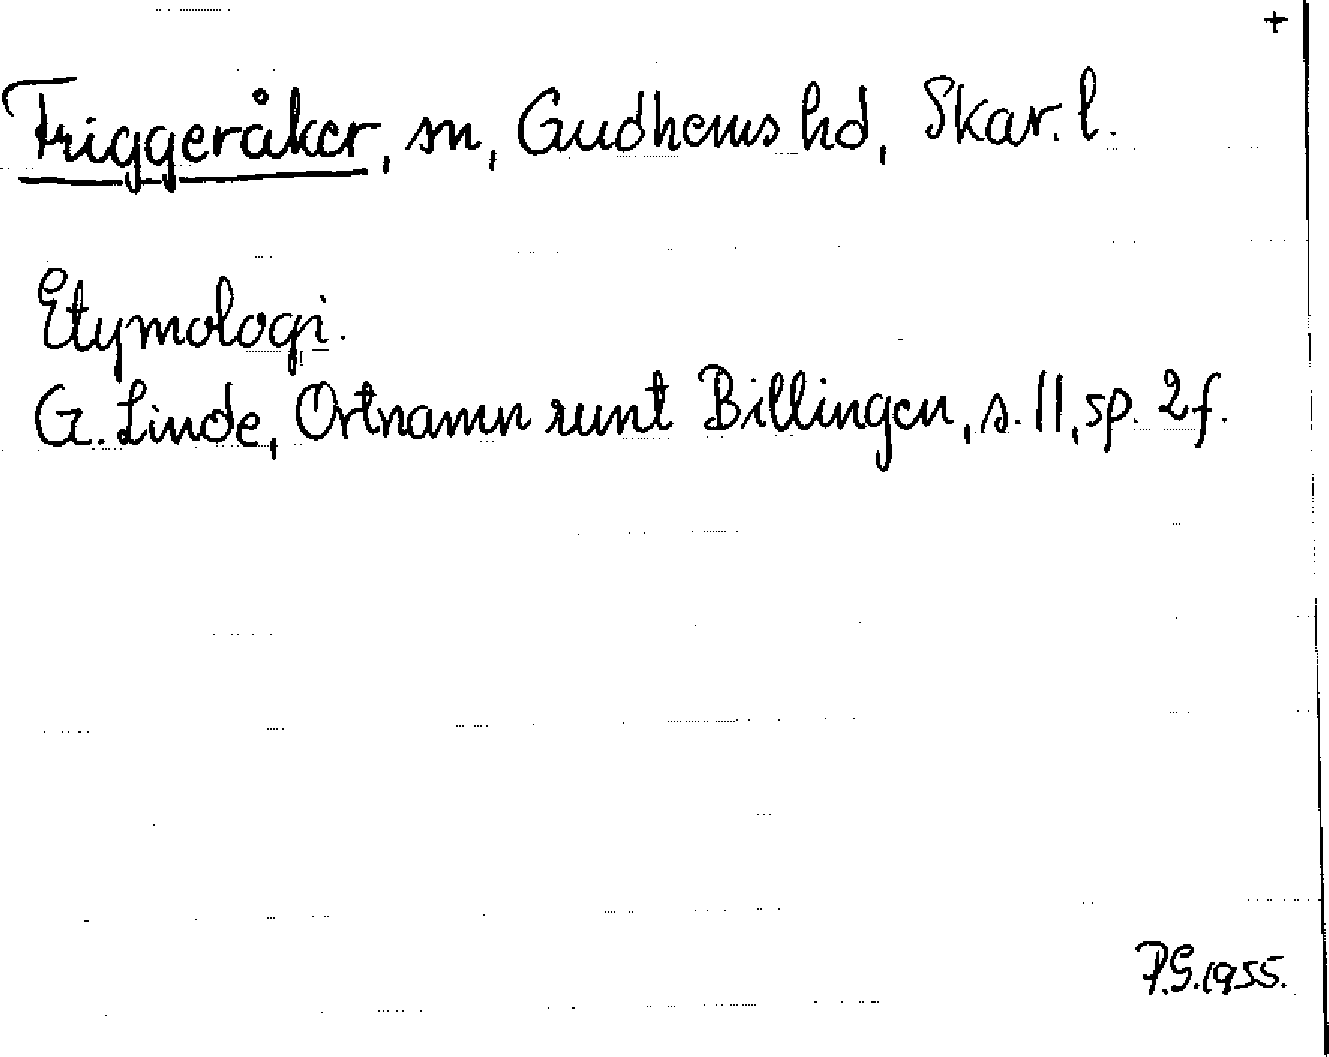 +
Friggeråker, sn, Gudhems hd, Skar. l.
Etymologi.
G. Linde, Ortnamn runt Billingen, s. 11, sp. 2f.
P.G. 1955.